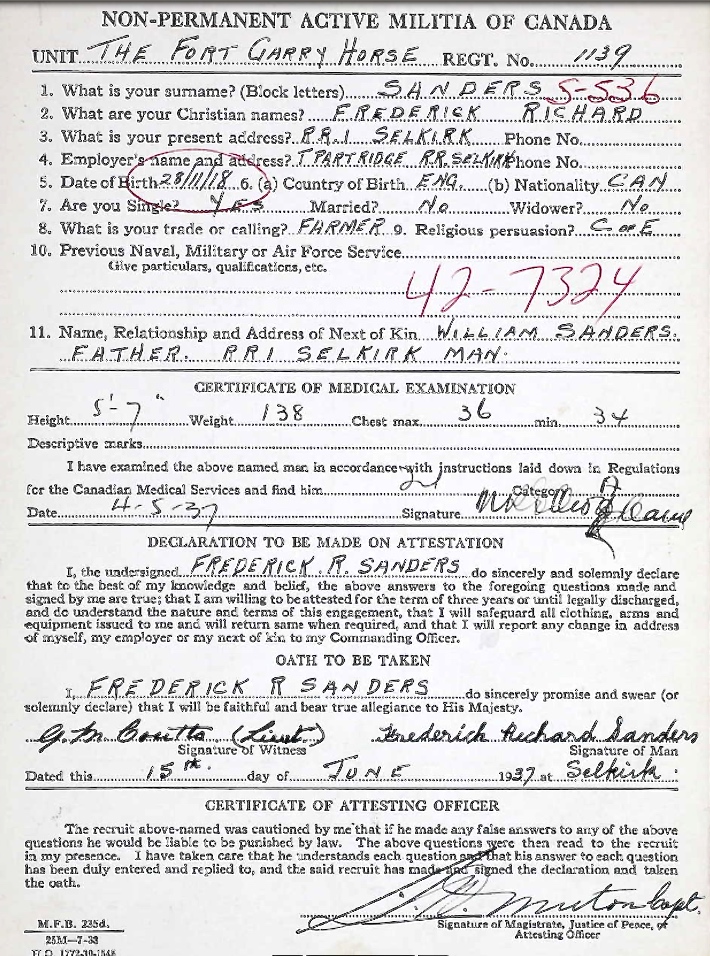 NON-PERMANENT ACTIVE MILITIA OF CANADA
UNIT THE FORT GARRY HORSE REGT. No. 1139
1. What is your surname? (Block letters) SANDERS 5-536
2. What are your Christian names? FREDERICK RICHARD
3. What is your present address? R.R.1 SELKIRK Phone No.
4. Employer's name and address? T. PARTRIDGE R.R. SELKIRK Phone No.
5. Date of Birth 28/11/18 6. (a) Country of Birth ENG. (b) Nationality CAN
7. Are you Single? YES Married? No Widower? No
8. What is your trade or calling? FARMER 9. Religious persuasion? C of E
10. Previous Naval, Military or Air Force Service
Give particulars, qualifications, etc.
42-7324
11. Name, Relationship and Address of Next of Kin WILLIAM SANDERS.
FATHER. RR1 SELKIRK MAN.
CERTIFICATE OF MEDICAL EXAMINATION
Height 5'-7" Weight 138 Chest max. 36 min. 34
Descriptive marks
I have examined the above named man in accordance with instructions laid down in Regulations
for the Canadian Medical Services and find him Category A
Date 4-5-37 Signature
DECLARATION TO BE MADE ON ATTESTATION
I, the undersigned FREDERICK R. SANDERS do sincerely and solemnly declare
that to the best of my knowledge and belief, the above answers to the foregoing questions made and
signed by me are true; that I am willing to be attested for the term of three years or until legally discharged,
and do understand the nature and terms of this engagement, that I will safeguard all clothing, arms and
equipment issued to me and will return same when required, and that I will report any change in address
of myself, my employer or my next of kin to my Commanding Officer.
OATH TO BE TAKEN
I, FREDERICK R SANDERS do sincerely promise and swear (or
solemnly declare) that I will be faithful and bear true allegiance to His Majesty.
G. M. Coutts (Lieut) Frederick Richard Sanders
Signature of Witness Signature of Man
Dated this 15th. day of JUNE 1937 at Selkirk.
CERTIFICATE OF ATTESTING OFFICER
The recruit above-named was cautioned by me that if he made any false answers to any of the above
questions he would be liable to be punished by law. The above questions were then read to the recruit
in my presence. I have taken care that he understands each question and that his answer to each question
has been duly entered and replied to, and the said recruit has made and signed the declaration and taken
the oath.
Capt.
Signature of Magistrate, Justice of Peace, or
Attesting Officer
M.F.B. 235d.
25M-7-33
H.Q. 1772-39-1548